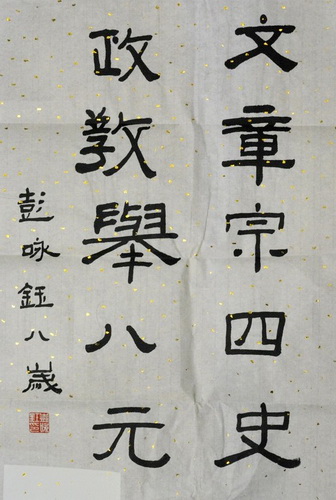 文章宗四史
政教舉八元
彭咏鈺八歲